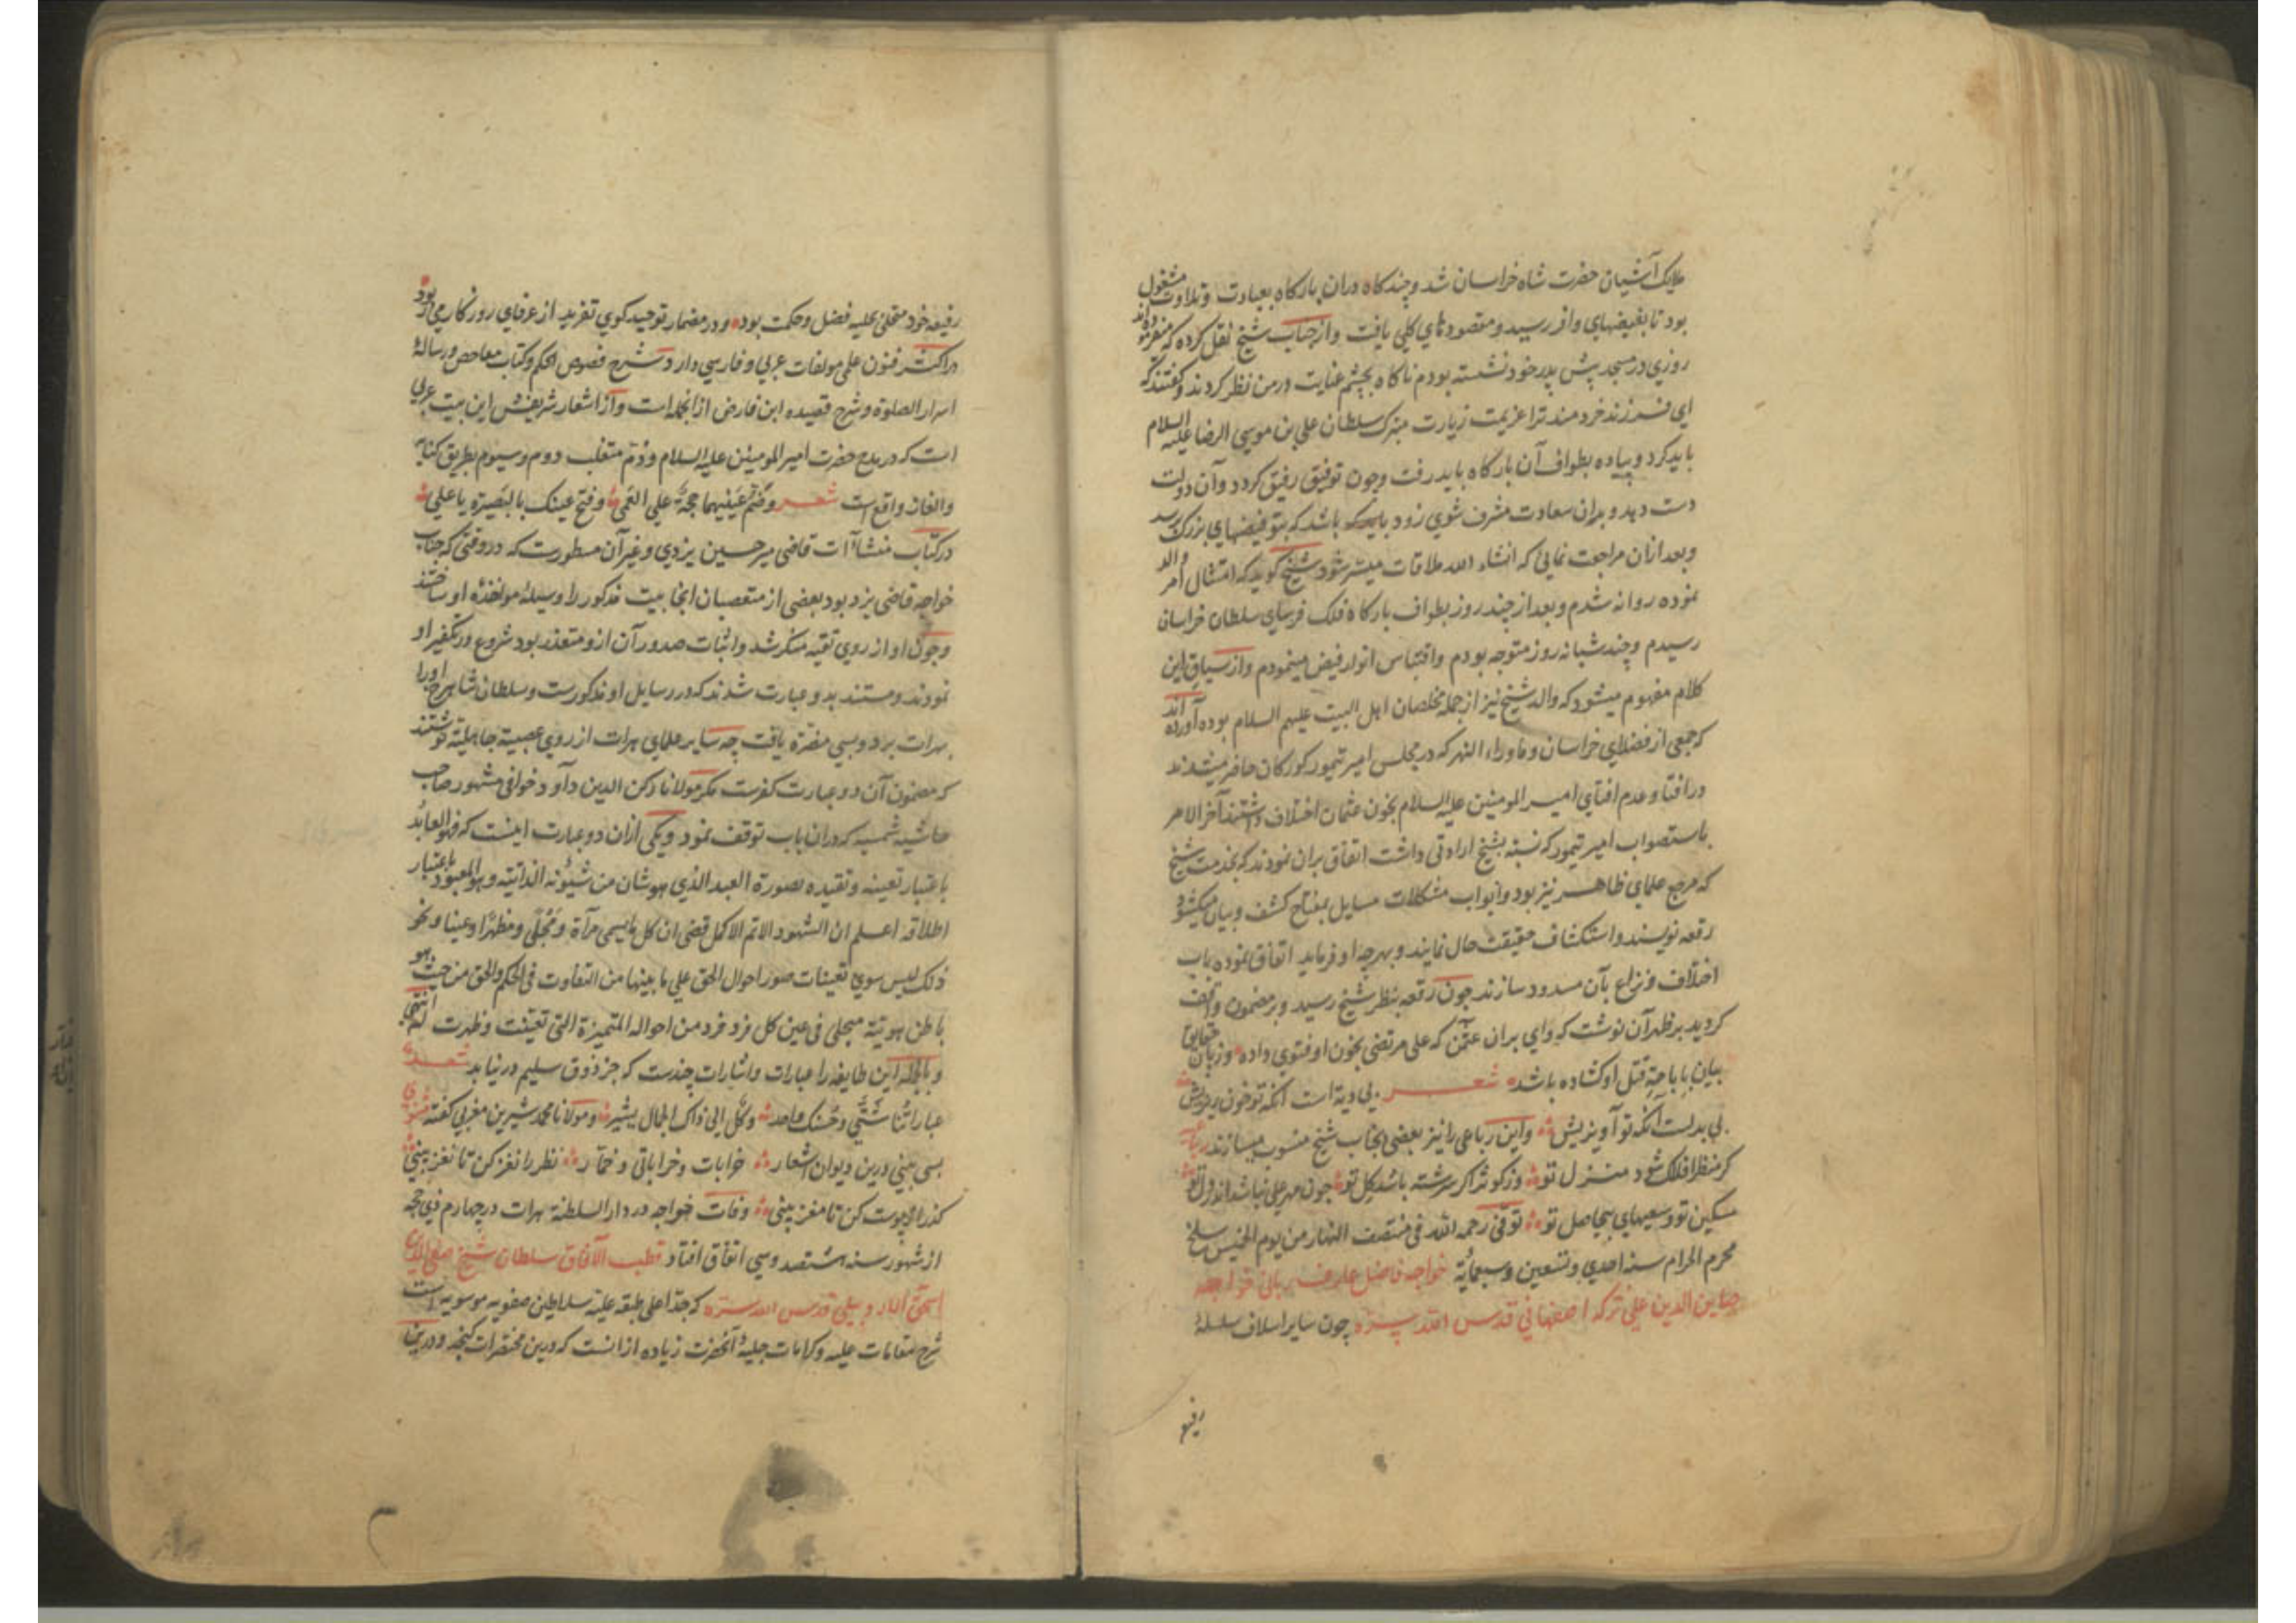 ملایک آشیان حضرت شاه خراسان شد و چند کاه دران بارکاه بعبادت و تلاوت مشغول
بود تا بفیضهای وافر رسید و مقصودهای کلی یافت و از جناب شیخ نقل کرده که میفرموده اند
روزی در مسجد پیش پدر خود نشسته بودم ناکاه بچشم عنایت در من نظر کردند و کفتند که
ای فرزند خردمند ترا عزیمت زیارت متبرک سلطان علی بن موسی الرضا علیه السلام
باید کرد و پیاده بطواف آن بارکاه باید رفت و چون توفیق رفیق کردد و آن دولت
دست دهد و بدان سعادت مشرف شوی زود باشد که بتو فیضهای بزرک رسد
و بعد ازان مراجعت نمائی که انشاء الله ملاقات میسر شود شیخ کوید که امتثال امر والد
نموده روانه شدم و بعد از چند روز بطواف بارکاه فلک فرسای سلطان خراسان
رسیدم و چند شبانه روز متوجه بودم و اقتباس انوار فیض مینمودم و از سیاق این
کلام مفهوم میشود که والد شیخ نیز از جمله مخلصان اهل البیت علیهم السلام بوده آورده اند
که جمعی از فضلای خراسان و ماوراء النهر که در مجلس امیر تیمور کورکان حاضر میشدند
در افتا و عدم افتای امیر المومنین علیه السلام بخون عثمان اختلاف داشتند آخر الامر
باستصواب امیر تیمور که نسبة بشیخ ارادتی داشت اتفاق بران نمودند که بخدمت شیخ
که مرجع علمای ظاهر نیز بود و ابواب مشکلات مسایل بمفتاح کشف و بیان میکشود
رقعه نویسند و استکشاف حقیقت حال نمایند و بهرچه او فرماید اتفاق نموده باب
اختلاف و نزاع بآن مسدود سازند چون رقعه بنظر شیخ رسید و بر مضمون واقف
کردید بر ظهر آن نوشت که وای بران عثمن که علی مرتضی بخون او فتوی داده و زبان حقایق
بیان باباحة قتل او کشاده باشد شعر بی دیة است آنکه تو خون ریزیش
بی بدلست آنکه تو آویزیش و این رباعی را نیز بعضی بجناب شیخ منسوب میسازند رباعیه
کر منظر افلاک شود منزل تو وز کوثر اکر سرشته باشد کل تو چون مهر علی نباشد اندر دل تو
مسکین تو و سعیهای بیحاصل تو توفی رحمه الله فی منتصف النهار من یوم الخمیس سلخ
محرم الحرام سنه احدی و تسعین و سبعمائة خواجه فاضل عارف ربانی خواجه
صاین الدین علی ترکه اصفهانی قدس الله سره چون سایر اسلاف سلسلهٔ
رفیع
رفیعه خود متحلی بحلیه فضل و حکمت بوده و در مضمار توحید کوی تفرید از عرفای روزکار می ربود
در اکثر فنون علمی مولفات عربی و فارسی دارد شرح فصوص الحکم و کتاب مفاحص و رسالهٔ
اسرار الصلوة و شرح قصیده ابن فارض از انجمله است و از اشعار شریفش این بیت عربی
است که در مدح حضرت امیر المومنین علیه السلام و ذم متغلب دوم و سیوم بطریق کنایه
و الغاز واقع است شعر وضم عینیهما حجة علی العمی وفتح عینک بالبصیره یا علی
در کتاب منشاآت قاضی میر حسین یزدی و غیر آن مسطورست که در وقتی که جناب
خواجه قاضی یزد بود بعضی از متعصبان انجا بیت مذکور را وسیلهٔ مواخذهٔ او ساختند
و چون او از روی تقیه منکر شد و اثبات صدور آن ازو متعذر بود شروع در تکفیر او
نمودند و مستند بدو عبارت شدند که در رسایل او مذکورست و سلطان شاهرخ او را
بهرات برد و بسی مضرة یافت چه سایر علمای هرات از روی عصبیة جاهلیة نوشتند
که مضمون آن دو عبارت کفرست مکر مولانا رکن الدین داود خوافی مشهور صاحب
حاشیه شمسیه که دران باب توقف نمود و یکی ازان دو عبارت اینست که فهو العابد
باعتبار تعینه و تقیده بصورة العبد الذی هو شان من شیونه الذاتیة و هو المعبود باعتبار
اطلاقه اعلم ان الشهود الاتم الاکمل قضی ان کل مایسمی مرآة و مجلی و مظهرا و عینا و نحو
ذلک لیس سوی تعینات صور احوال الحق علی ما بینها من التفاوت فی الحکم و الحق من حیث هو
باطن هویته متجلی فی عین کل فرد فرد من احواله المتمیزة التی تعینت و ظهرت له انتهی
و بالجمله این طایفه را عبارات و اشارات چندست که جز ذوق سلیم در نیابد شعر
عباراتنا شتی و حسنک واحد وکل الی ذاک الجمال یشیر و مولانا محمد شیرین مغربی کفته مثنوی
بسی بینی درین دیوان اشعار خرابات و خراباتی و خمار نظر را نغز کن تا نغز بینی
کذر از پوست کن تا مغز بینی وفات خواجه در دار السلطنة هرات در چهارم ذی حجه
از شهور سنه ثمانصد و سی اتفاق افتاد قطب الآفاق سلطان شیخ صفی الدین
اسحق اردبیلی قدس الله سره که جد اعلی طبقه علیه سلاطین صفویه موسویه است
شرح مقامات علیه و کرامات جلیهٔ آنحضرت زیاده ازانست که درین مختصرات کنجد و درین